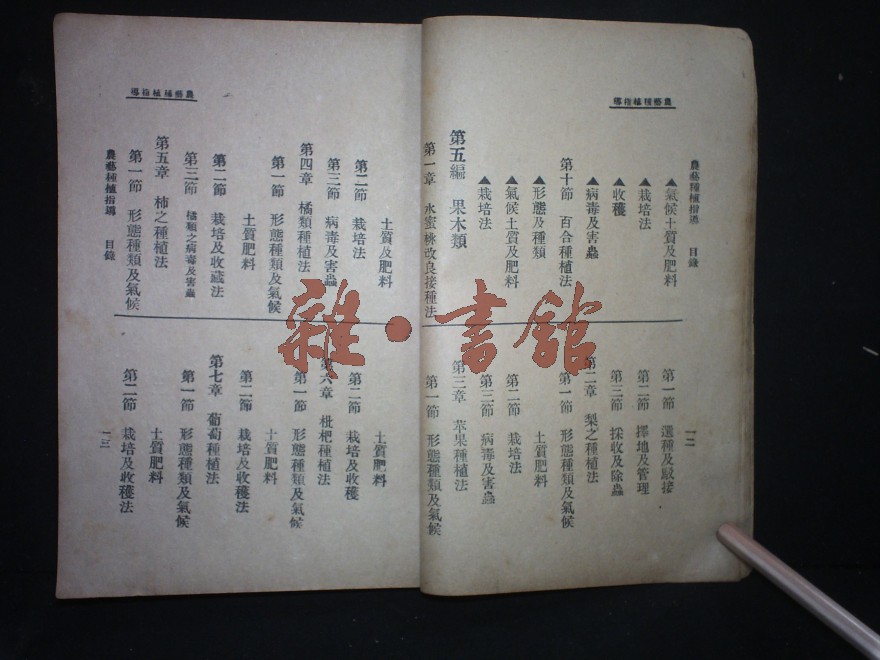 農藝種植指導
農藝種植指導 目錄
▲氣候土質及肥料
▲栽培法
▲收穫
▲病毒及害蟲
第十節 百合種植法
▲形態及種類
▲氣候土質及肥料
▲栽培法
第五編 果木類
第一章 水蜜桃改良接種法
第一節 選種及
第二節 擇地及管理
第三節 採收及除蟲
第二章 梨之種植法
第一節 形態種類及氣候
土質肥料
第二節 栽培法
第三節 病毒及害蟲
第三章 苹果種植法
第一節 形態種類及氣候
一二
農藝種植指導
土質及肥料
第二節 栽培法
第三節 病毒及害蟲
第四章 橘類種植法
第一節 形態種類及氣候
土質肥料
第二節 栽培及收藏法
第三節 橘類之病毒及害蟲
第五章 柿之種植法
第一節 形態種類及氣候
農藝種植指導 目錄
土質肥料
第二節 栽培及收穫
第六章 枇杷種植法
第一節 形態種類及氣候
土質肥料
第二節 栽培及收穫法
第七章 葡萄種植法
第一節 形態種類及氣候
土質肥料
第二節 栽培及收穫法
一三
雜·書館